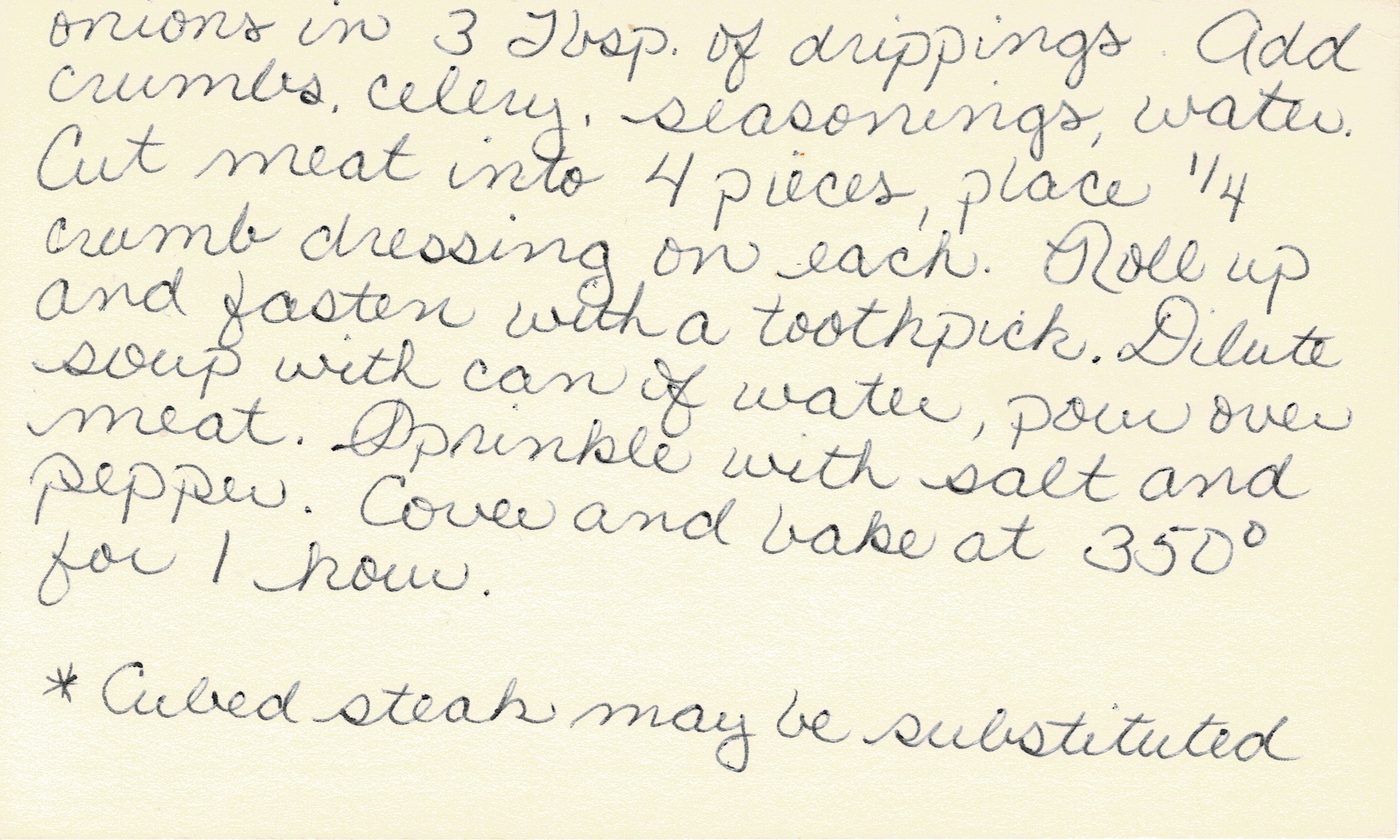 onions in 3 Tbsp. of drippings. Add
crumbs, celery, seasonings, water.
Cut meat into 4 pieces, place 1/4
crumb dressing on each. Roll up
and fasten with a toothpick. Dilute
soup with can of water, pour over
meat. Sprinkle with salt and
pepper. Cover and bake at 350°
for 1 hour.
* Cubed steak may be substituted